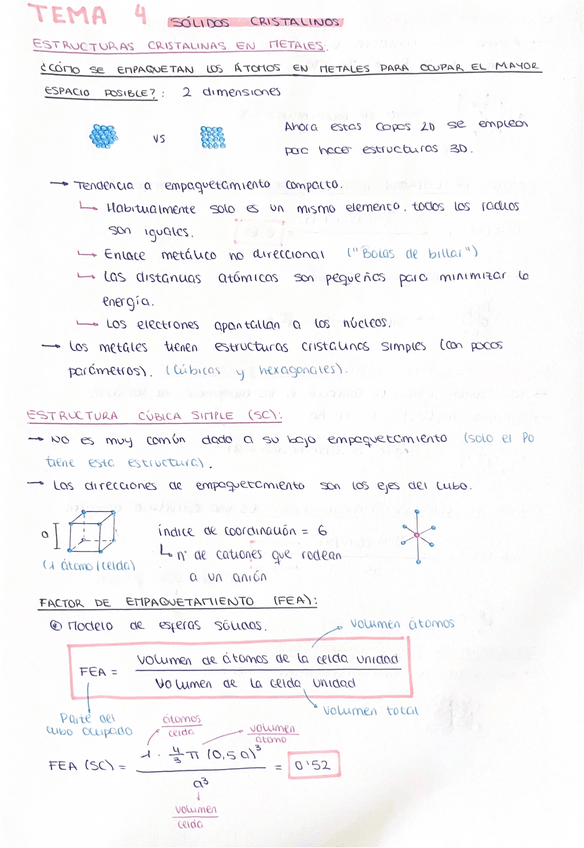 TEMA 4 SÓLIDOS CRISTALINOS
ESTRUCTURAS CRISTALINAS EN METALES.
¿CÓMO SE EMPAQUETAN LOS ÁTOMOS EN METALES PARA OCUPAR EL MAYOR
ESPACIO POSIBLE?: 2 dimensiones
vs
Ahora estas capas 2D se emplean
par hacer estructuras 3D.
→ Tendencia a empaquetamiento compacto.
↳ Habitualmente solo es un mismo elemento, todos los radios
son iguales.
↳ Enlace metálico no direccional ("Bolas de billar")
↳ Las distancias atómicas son pequeñas para minimizar la
energía.
↳ Los electrones apantallan a los núcleos.
→ Los metales tienen estructuras cristalinas simples (con pocos
parámetros). (Cúbicas y hexagonales).
ESTRUCTURA CÚBICA SIMPLE (SC):
→ NO es muy común dado a su bajo empaquetamiento (solo el Po
tiene esta estructura).
→ Las direcciones de empaquetamiento son los ejes del cubo.
a
(1 átomo/celda)
índice de coordinación = 6
↳ nº de cationes que rodean
a un anión
FACTOR DE EMPAQUETAMIENTO (FEA):
Modelo de esferas sólidas.
volumen átomos
FEA = volumen de átomos de la celda unidad
volumen de la celda unidad
Parte del
cubo ocupado
volumen total
átomos
celda
volumen
átomo
FEA (SC) = 1 · 4/3 π (0,5 a)³ = 0'52
a³
volumen
celda